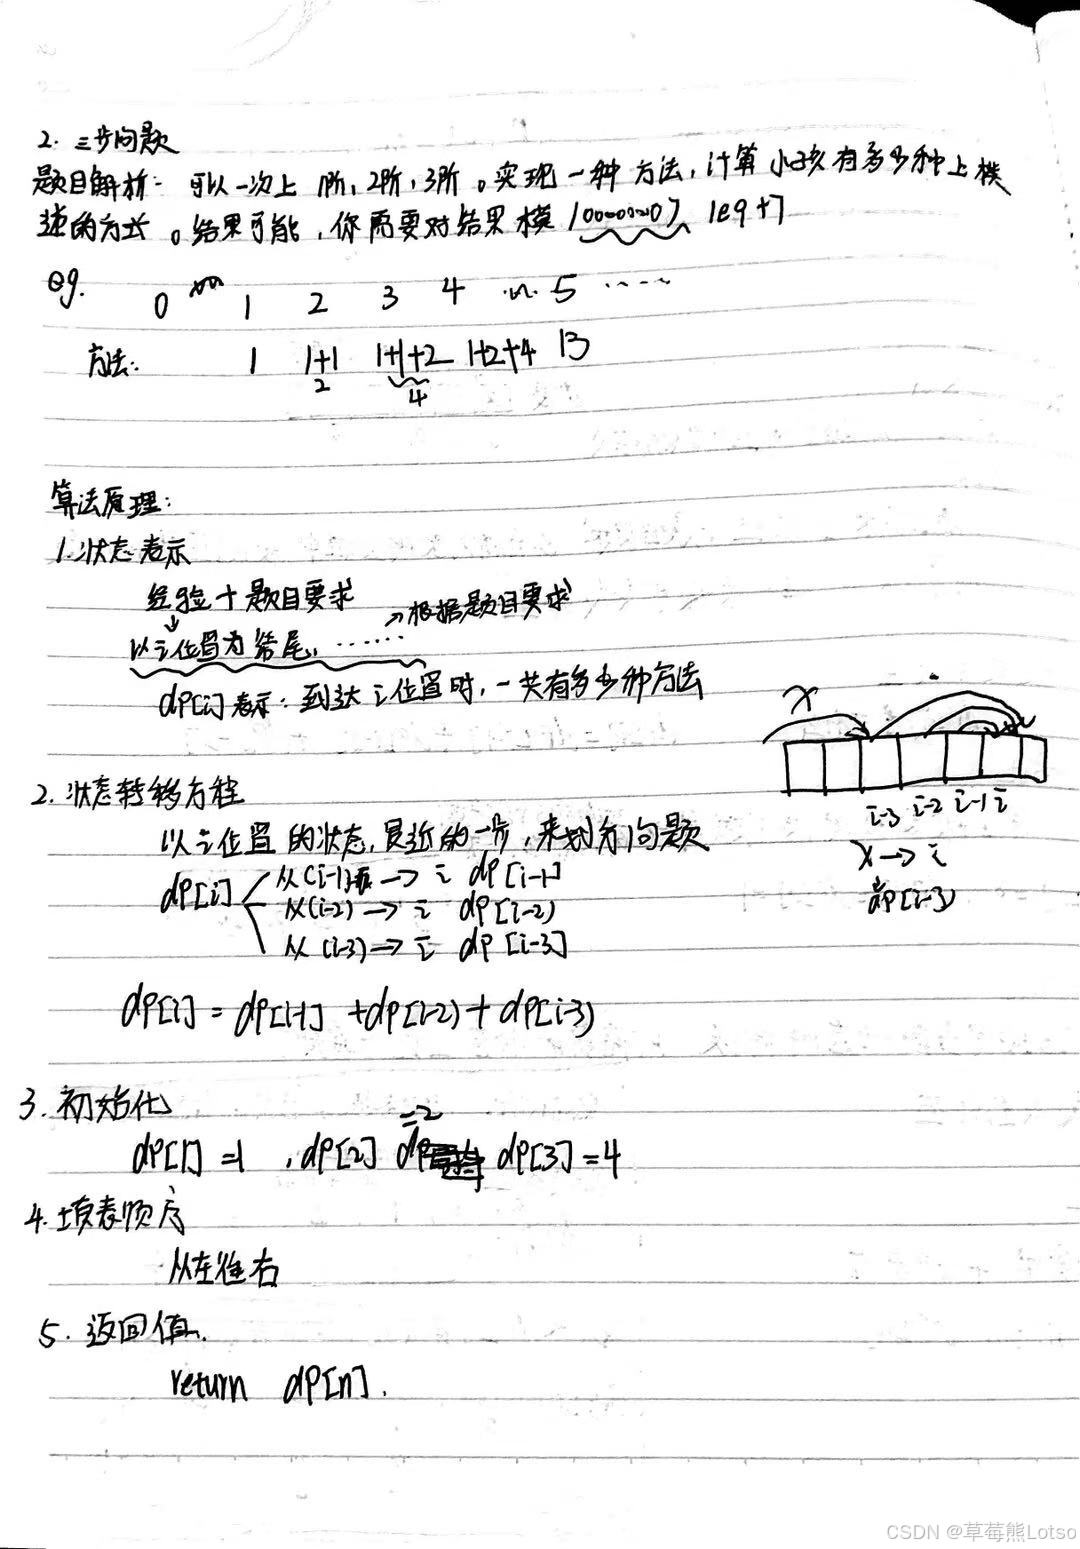 2. 三步问题
题目解析: 可以一次上 1阶, 2阶, 3阶。实现一种方法, 计算小孩有多少种上楼
梯的方式。结果可能, 你需要对结果模 1000000007 1e9+7
eg. 0 1 2 3 4 5 ······
方法: 1 1+1 1+1+2 1+2+4 13
2 4
算法原理:
1. 状态表示
经验 + 题目要求
以i位置为结尾, ······ → 根据题目要求
dp[i]表示: 到达i位置时, 一共有多少种方法
x
i-3 i-2 i-1 i
2. 状态转移方程
以i位置的状态, 最近的一步, 来划分问题
x → i
dp[i] 从(i-1) → i dp[i-1]
从(i-2) → i dp[i-2)
dp[i-3)
从(i-3) → i dp[i-3]
dp[i] = dp[i-1] + dp[i-2) + dp[i-3)
3. 初始化
=2
dp[1] =1 , dp[2] dp[3] =4
4. 填表顺序
从左往右
5. 返回值.
return dp[n].
CSDN @草莓熊Lotso